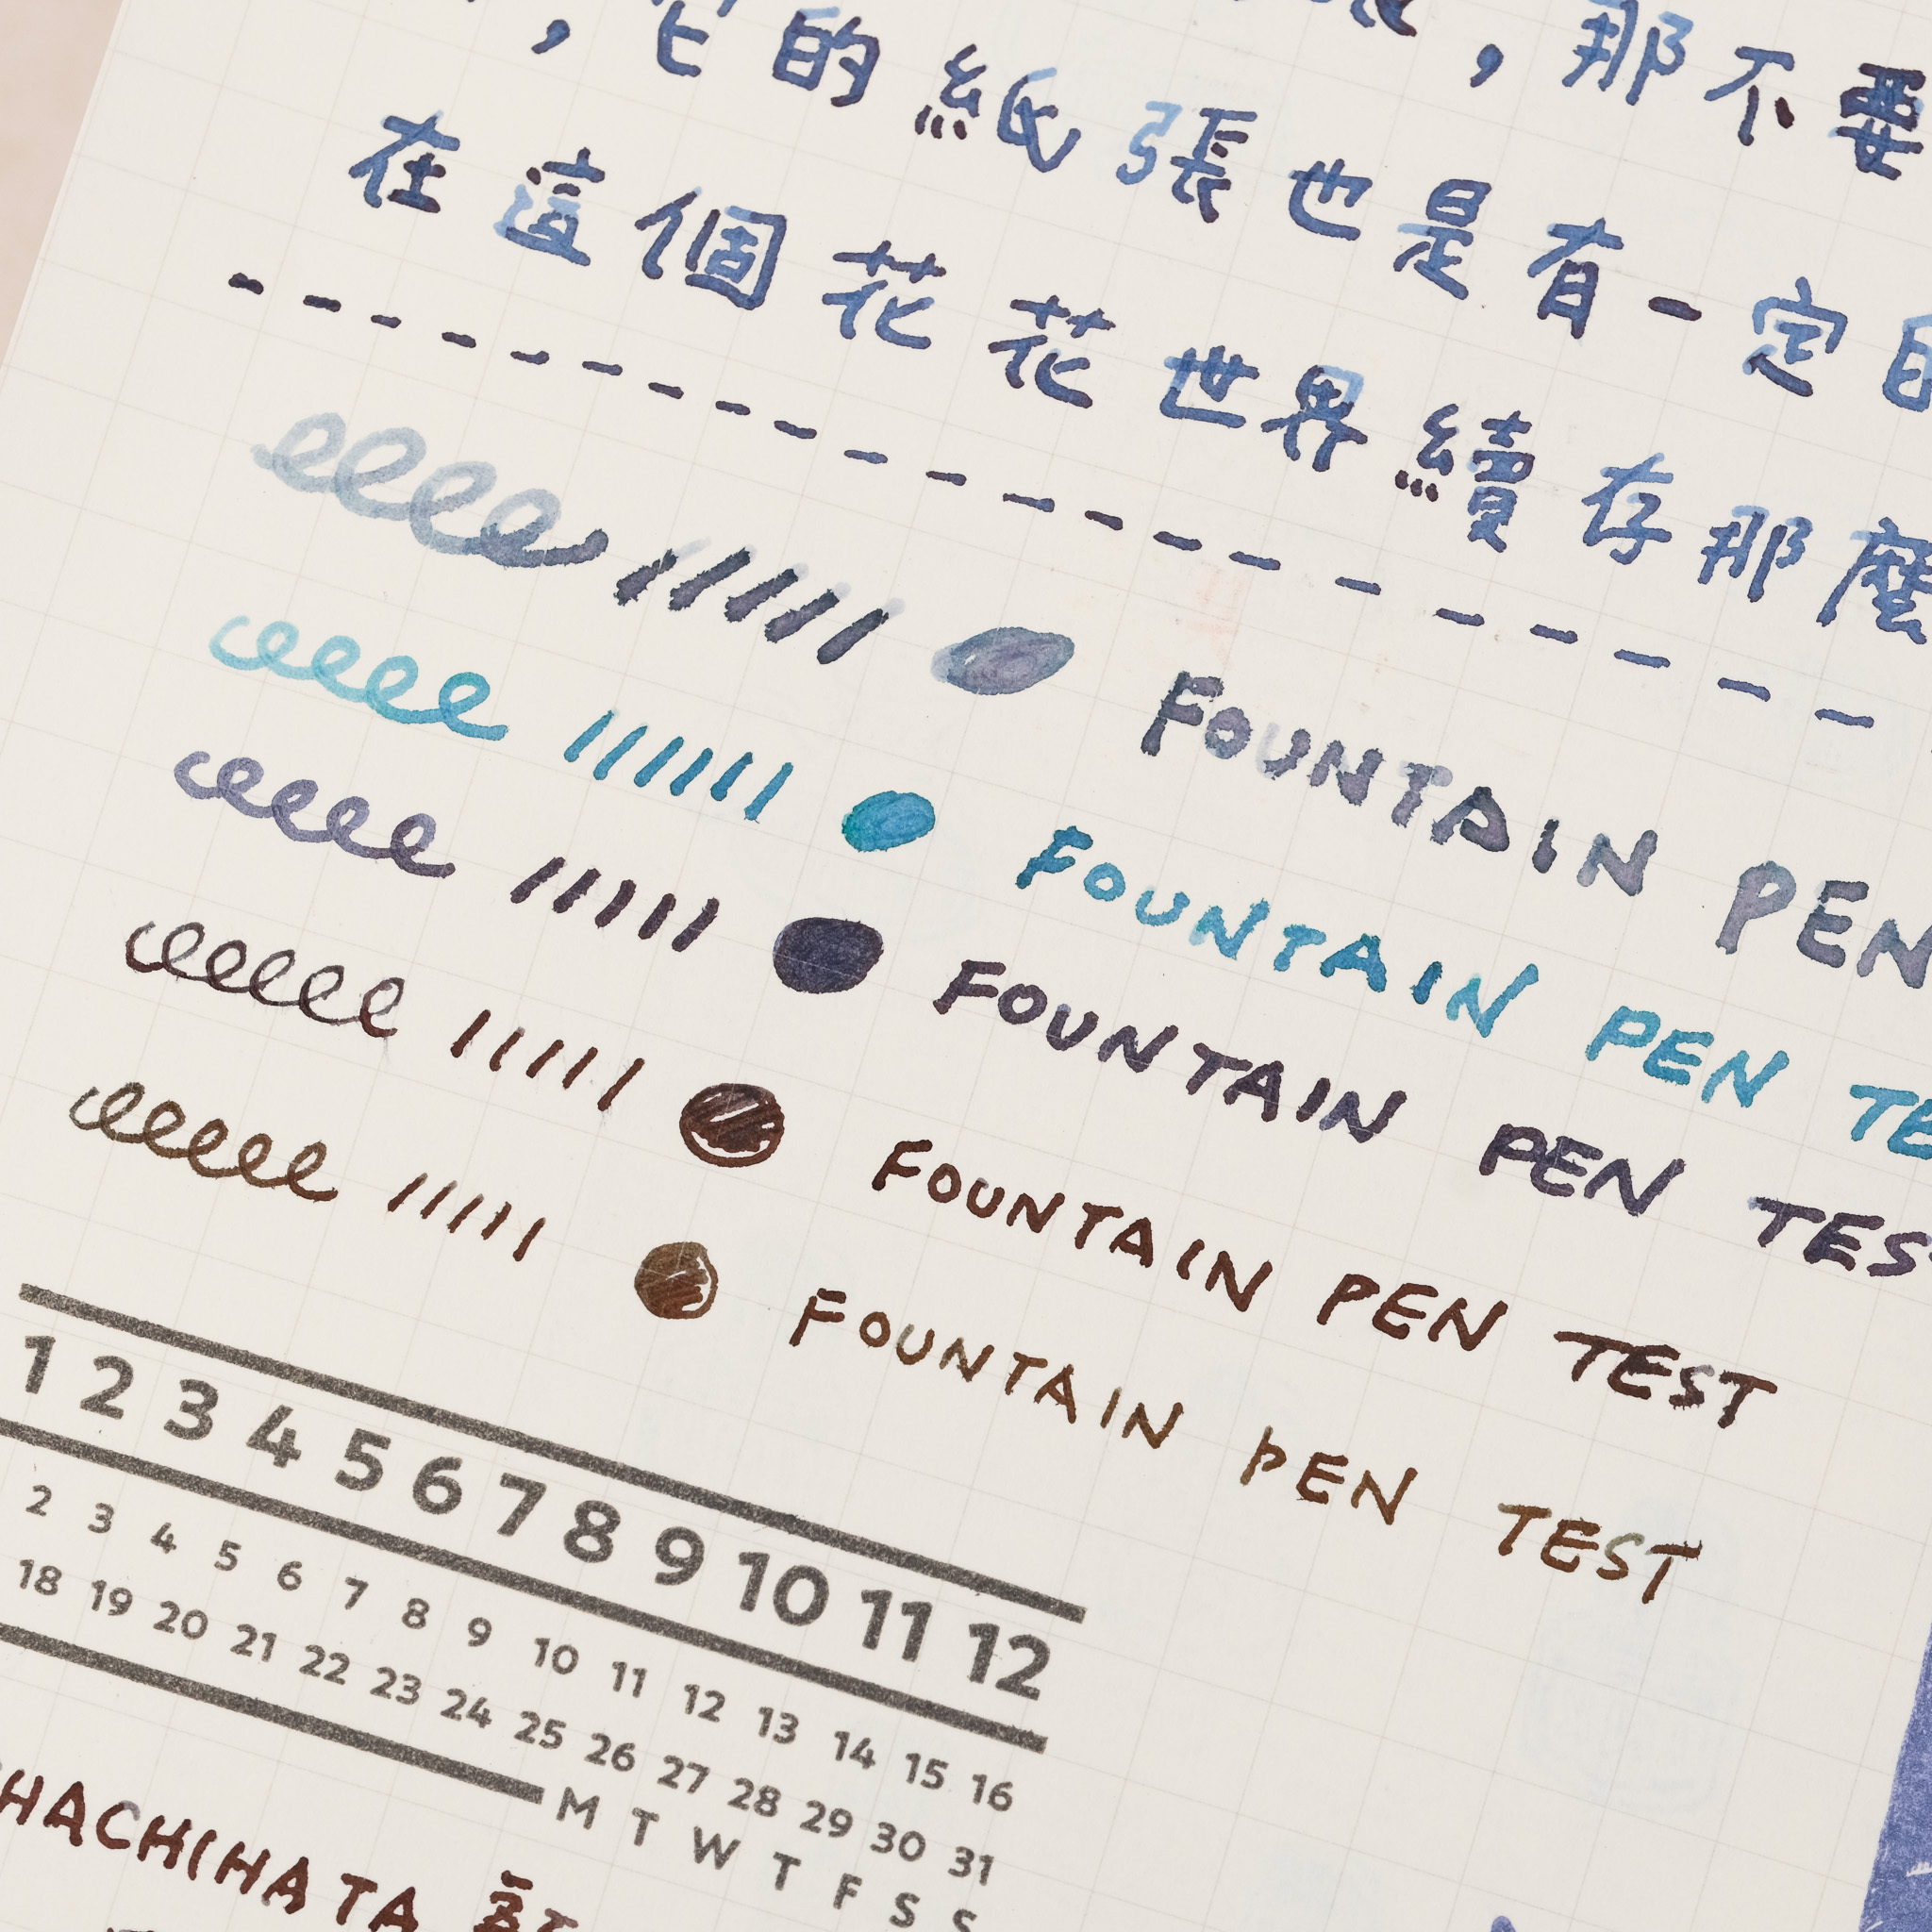 ，它的紙張也是有一定的
，那不要
在這個花花世界續存那麼
FOUNTAIN PEN
FOUNTAIN PEN TE
FOUNTAIN PEN TEST
FOUNTAIN PEN TEST
FOUNTAIN PEN TEST
1 2 3 4 5 6 7 8 9 10 11 12
2 3 4 5 6 7 8 9 10 11 12 13 14 15 16
18 19 20 21 22 23 24 25 26 27 28 29 30 31
M T W T F S S
HACHIHATA